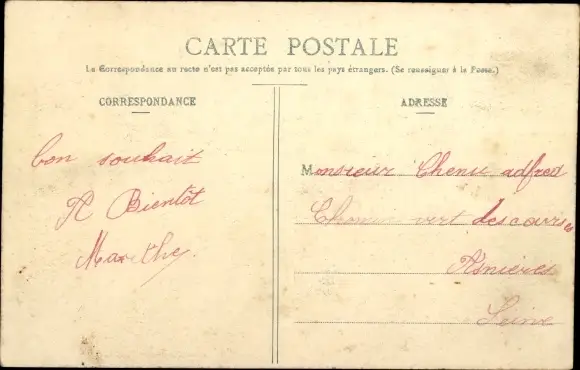 CARTE POSTALE
La Correspondance au recto n'est pas acceptée par tous les pays étrangers. (Se renseigner à la Poste.)
CORRESPONDANCE
bon souhait
A Bientôt
Marthe
ADRESSE
Monsieur Chenu adfred
Chemin vert des courses
Asnières
Seine